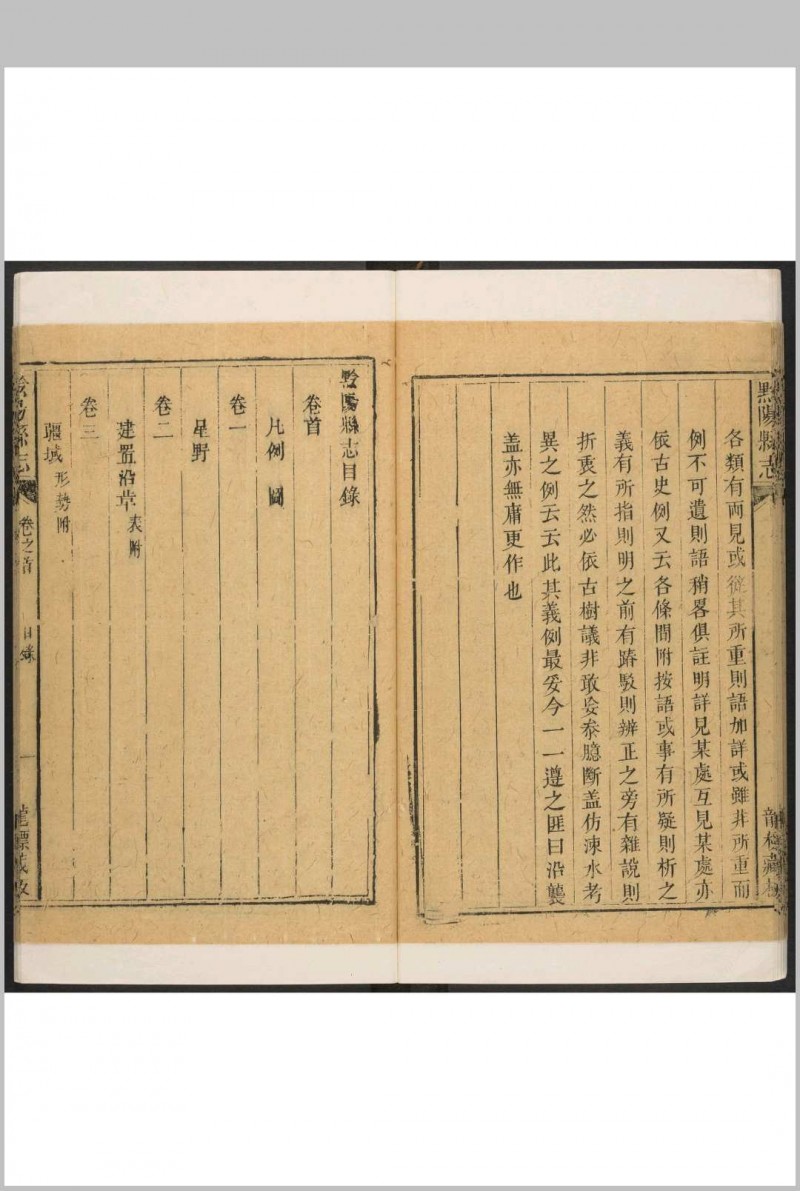 黔陽縣志
各類有兩見或從其所重則語加詳或雖非所重而
例不可遺則語稍畧俱註明詳見某處互見某處亦
依古史例又云各條間附按語或事有所疑則析之
義有所指則明之前有踳駁則辨正之旁有雜說則
折衷之然必依古樹議非敢妄叅臆斷盖仿涑水考
異之例云云此其義例最妥今一一遵之匪曰沿襲
盖亦無庸更作也
黔陽縣志目錄
卷首
凡例 圖
卷一
星野
卷二
建置沿革 表附
卷三
疆域 形勢附
黔陽縣志 卷之首 目錄 一